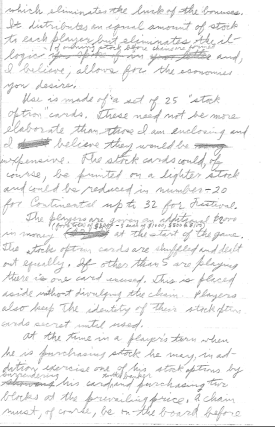 which eliminates the luck of the bonuses.
It distributes an equal amount of stock
to each player but eliminates the il-
logic of and,
I believe, allows for the economies
you desire.
Use is made of a set of 25 "stock
option" cards. These need not be more
elaborate than those I am enclosing and
I believe they would be
inexpensive. The stock cards could, of
course, be printed on a lighter stock
and could be reduced in number - 20
for Continental up to 32 for Festival.
The players are given an additional
in money at the start of the game.
The stock option cards are shuffled and dealt
out equally. If other than 5 are playing
there is one card unused. This is placed
aside without divulging the chain. Players
also keep the identity of their stock option
cards secret until used.
At the time in a player's turn when
he is purchasing stock he may, in ad-
dition exercise one of his stock options by
surrendering his card and purchasing two
blocks at the prevailing price. A chain
must, of course, be on the board before